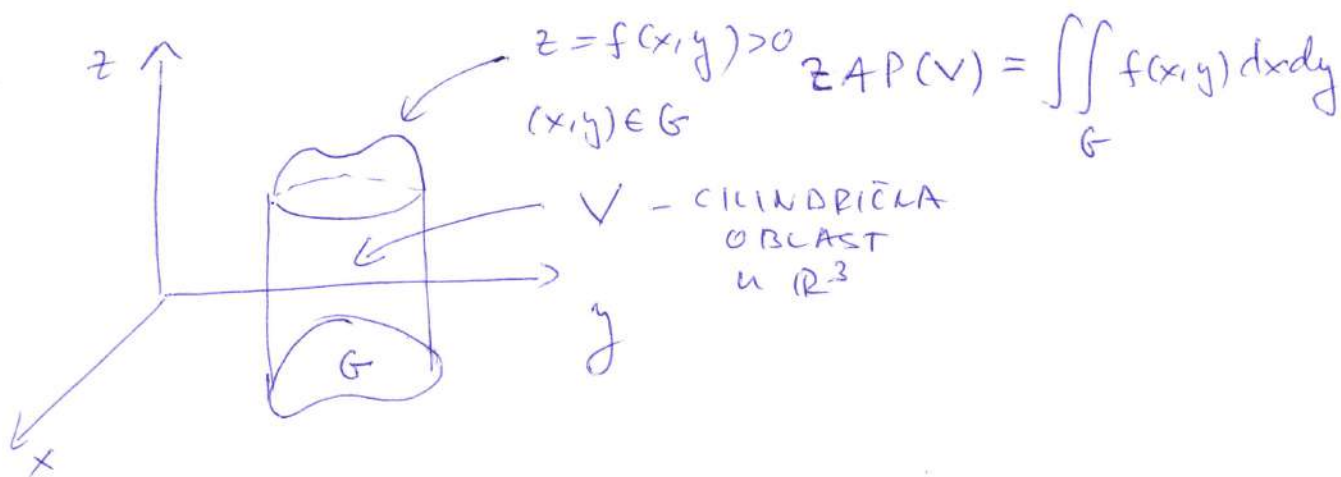 z
z = f(x,y) > 0
ZAP(V) = ∬_G f(x,y) dxdy
(x,y) ∈ G
V - CILINDRIČNA
OBLAST
u ℝ³
y
G
x